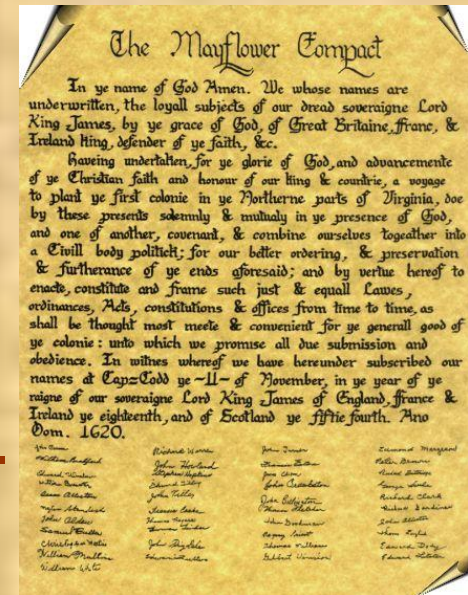 The Mayflower Compact
In ye name of God Amen. We whose names are
underwritten, the loyall subjects of our dread soveraigne Lord
King James, by ye grace of God, of Great Britaine, franc, &
Ireland king, defender of ye faith, &c.
Haveing undertaken, for ye glorie of God, and advancemente
of ye Christian faith and honour of our king & countrie, a voyage
to plant ye first colonie in ye Northerne parts of Virginia, doe
by these presents solemnly & mutualy in ye presence of God,
and one of another, covenant, & combine ourselves togeather into
a Civill body politick; for our better ordering, & preservation
& furtherance of ye ends aforesaid; and by vertue hereof to
enacte, constitute and frame such just & equall Lawes,
ordinances, Acts, constitutions & offices from time to time, as
shall be thought most meete & convenient for ye generall good of
ye colonie: unto which we promise all due submission and
obedience. In witnes whereof we have hereunder subscribed our
names at Cap=Codd ye ~11~ of November, in ye year of ye
raigne of our soveraigne Lord King James of England, france &
Ireland ye eighteenth, and of Scotland ye fiftie fourth. Ano
Dom. 1620.
William Bradford
Isaac Allerton
John Alden
Samuel Fuller
William Mullins
William White
Richard Warren
John Howland
Edward Tilley
John Tilley
John Turner
John Crackston
John Billington
Thomas Williams
Peter Brown
Richard Clark
John Allerton
Edward Doty